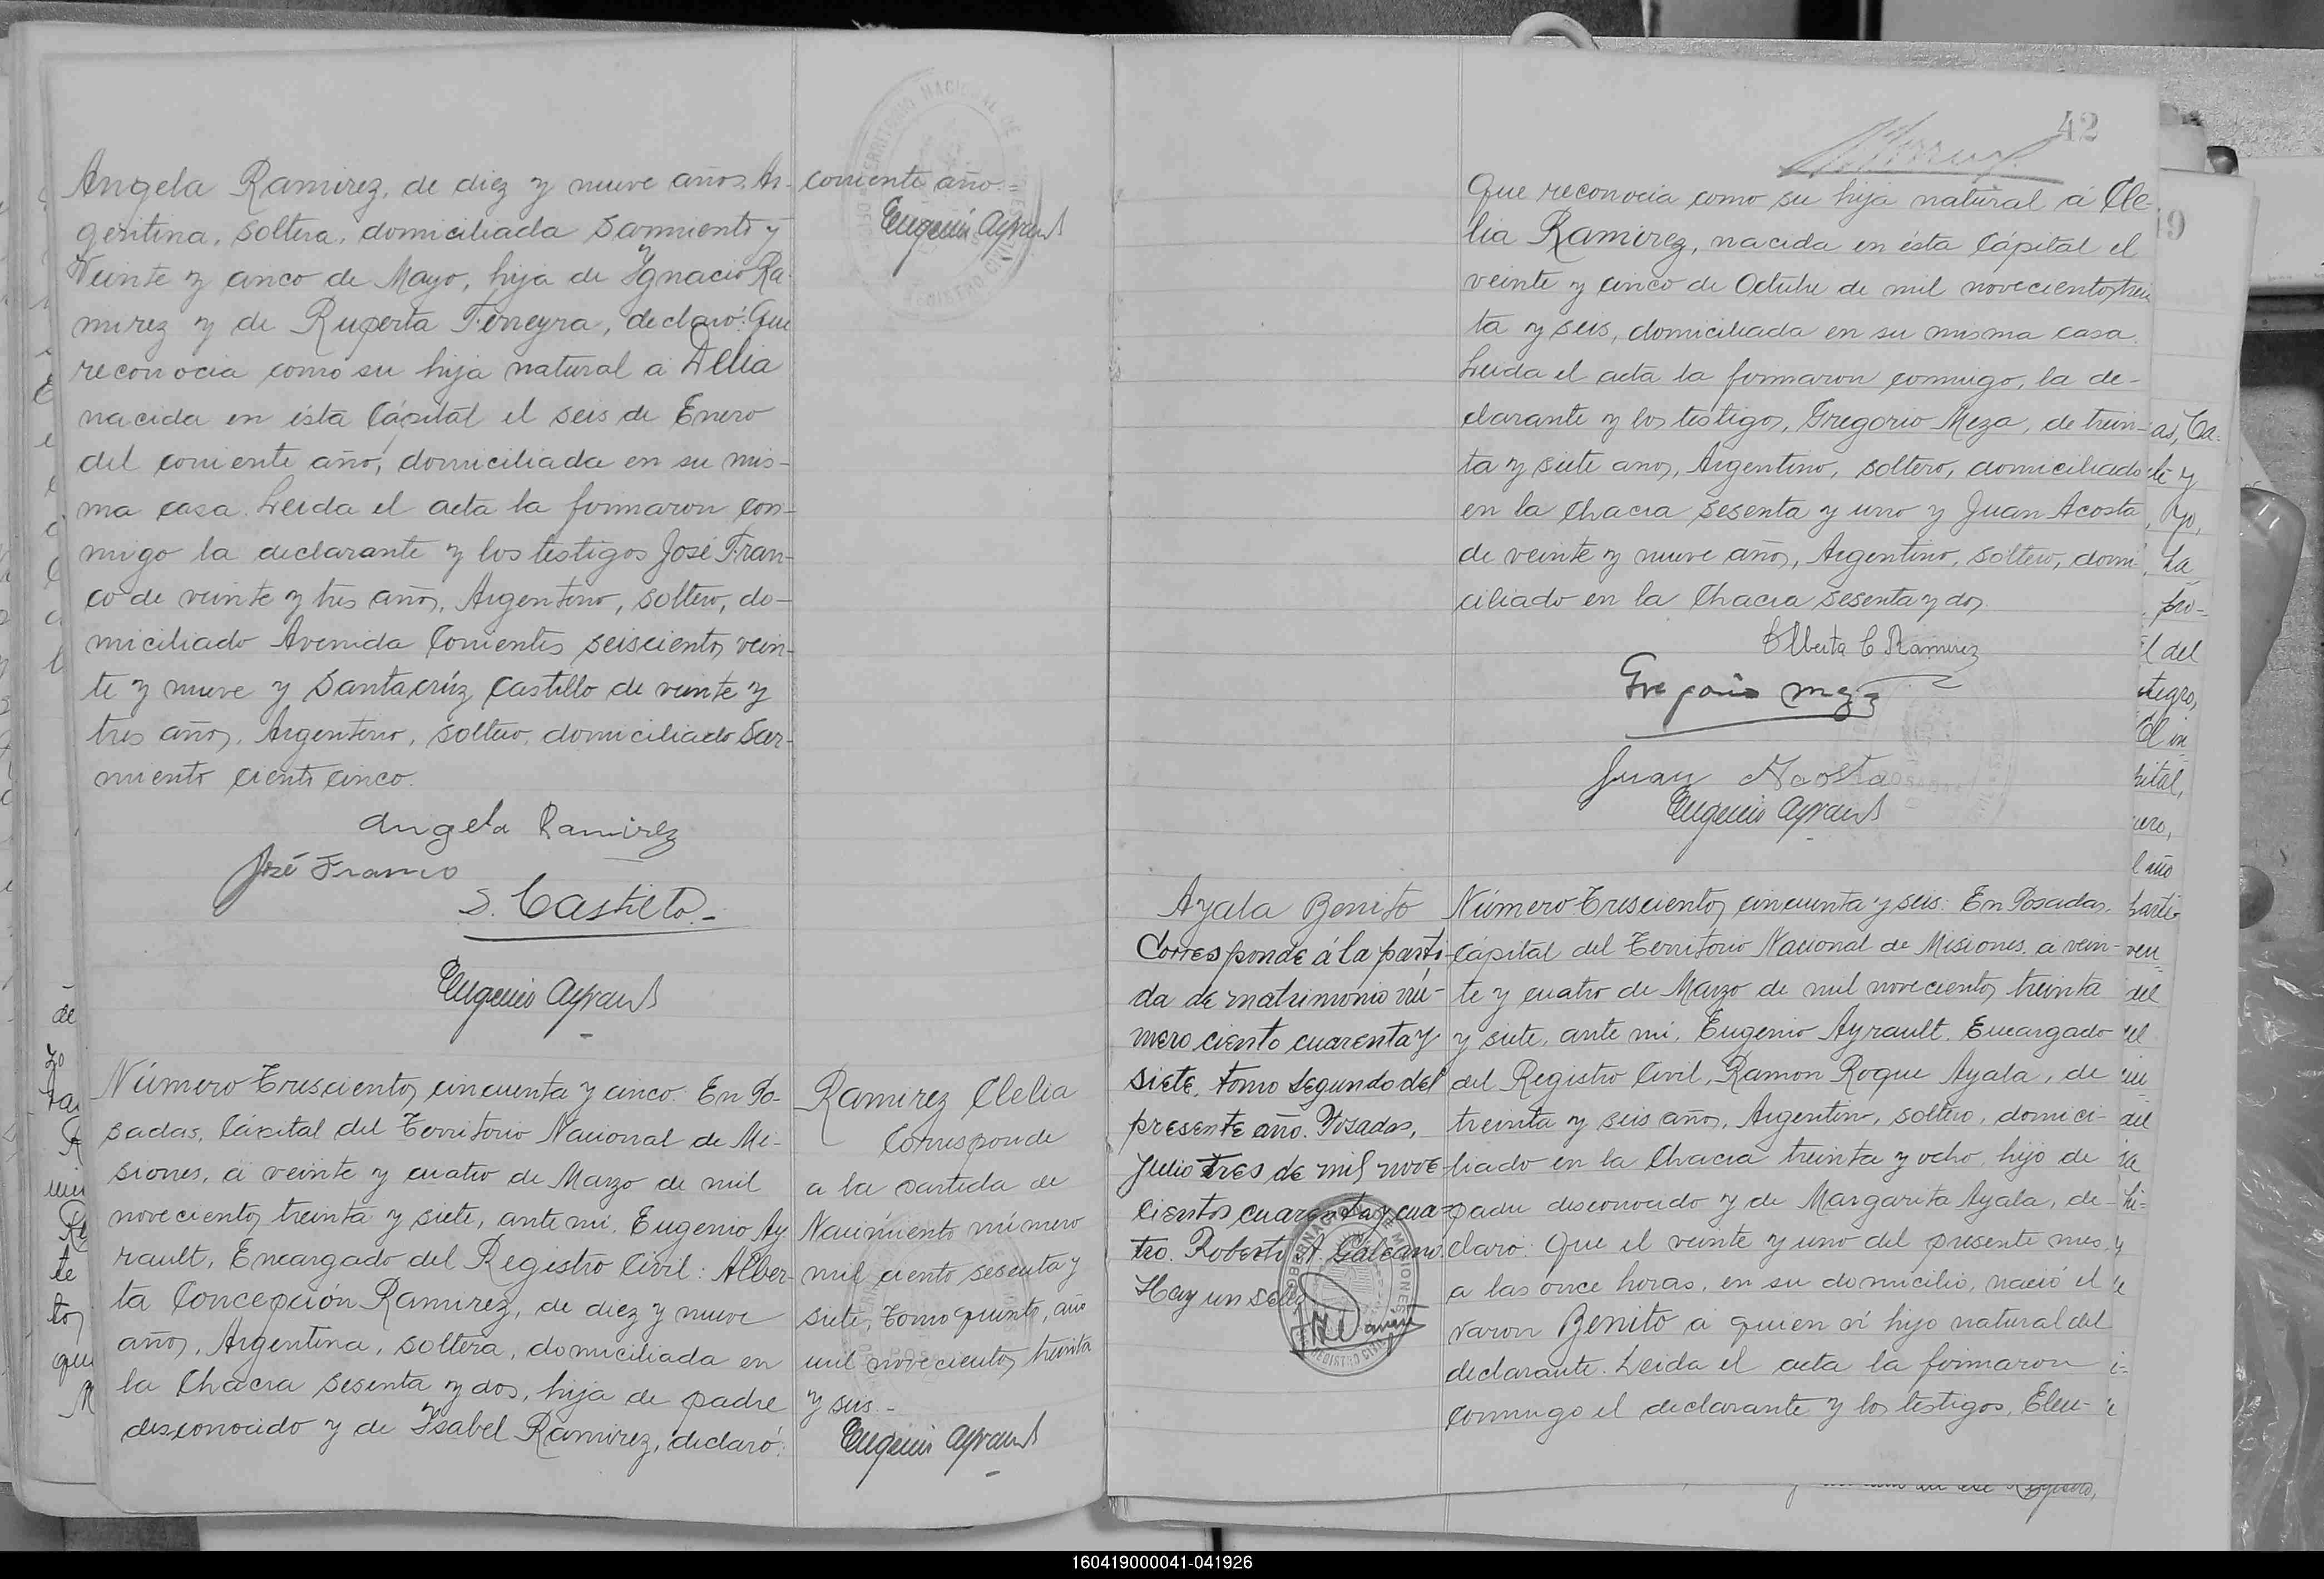 Angela Ramirez, de diez y nueve años, Ar-
gentina, soltera, domiciliada Sarmiento y
Veinte y cinco de Mayo, hija de Ygnacio Ra-
mirez y de Ruperta Ferreyra, declaró: Que
reconocia como su hija natural a Delia
nacida en ésta Cápital el seis de Enero
del corriente año, domiciliada en su mis-
ma casa. Leida el acta la firmaron con-
migo la declarante y los testigos José Fran-
co de veinte y tres años, Argentino, soltero, do-
miciliado Avenida Corrientes seiscientos vein-
te y nueve y Santacrúz Castillo de veinte y
tres años, Argentino, soltero, domiciliado Sar-
miento ciento cinco.
Angela Ramirez
José Franco
S. Castillo.-
Eugenio Ayrault
corriente año.=
Eugenio Ayrault
Número Trescientos cincuenta y cinco. En Po-
sadas, Cápital del Territorio Nacional de Mi-
siones, á veinte y cuatro de Marzo de mil
novecientos treinta y siete, ante mi, Eugenio Ay-
rault, Encargado del Registro Civil: Alber-
ta Concepción Ramirez, de diez y nueve
años, Argentina, soltera, domiciliada en
la Chacra sesenta y dos, hija de padre
desconocido y de Ysabel Ramirez, declaró:
Ramirez Clelia
Corresponde
a la partida de
Nacimiento número
mil ciento sesenta y
siete, Tomo quinto, año
mil novecientos treinta
y seis.-
Eugenio Ayrault
42
Que reconocia como su hija natural á Cle-
lia Ramirez, nacida en ésta Cápital el
veinte y cinco de Octubre de mil novecientos trein
ta y seis, domiciliada en su misma casa.
Leida el acta la firmaron conmigo, la de-
clarante y los testigos, Gregorio Meza, de trein-
ta y siete anos, Argentino, soltero, domiciliado
en la Chacra sesenta y uno y Juan Acosta
de veinte y nueve años, Argentino, soltero, domi-
ciliado en la Chacra sesenta y dos
Alberta C Ramirez
Gregorio Meza
Juan Acosta
Eugenio Ayrault
Ayala Benito
Corresponde á la parti-
da de matrimonio nú-
mero ciento cuarenta y
siete, tomo segundo del
presente año. Posadas,
Julio tres de mil nove-
cientos cuarenta y cua-
tro. Roberto A. Galeano.
Hay un sello
Número Trescientos cincuenta y seis. En Posadas,
Cápital del Territorio Nacional de Misiones, á vein-
te y cuatro de Marzo de mil novecientos treinta
y siete, ante mi, Eugenio Ayrault, Encargado
del Registro Civil, Ramon Roque Ayala, de
treinta y seis años, Argentino, soltero, domici-
liado en la Chacra treinta y ocho, hijo de
padre desconocido y de Margarita Ayala, de-
claró: Que el veinte y uno del presente mes,
a las once horas, en su domicilio, nació el
varon Benito a quien ví hijo natural del
declarante. Leida el acta la firmaron
conmigo el declarante y los testigos, Eleu-
160419000041-041926